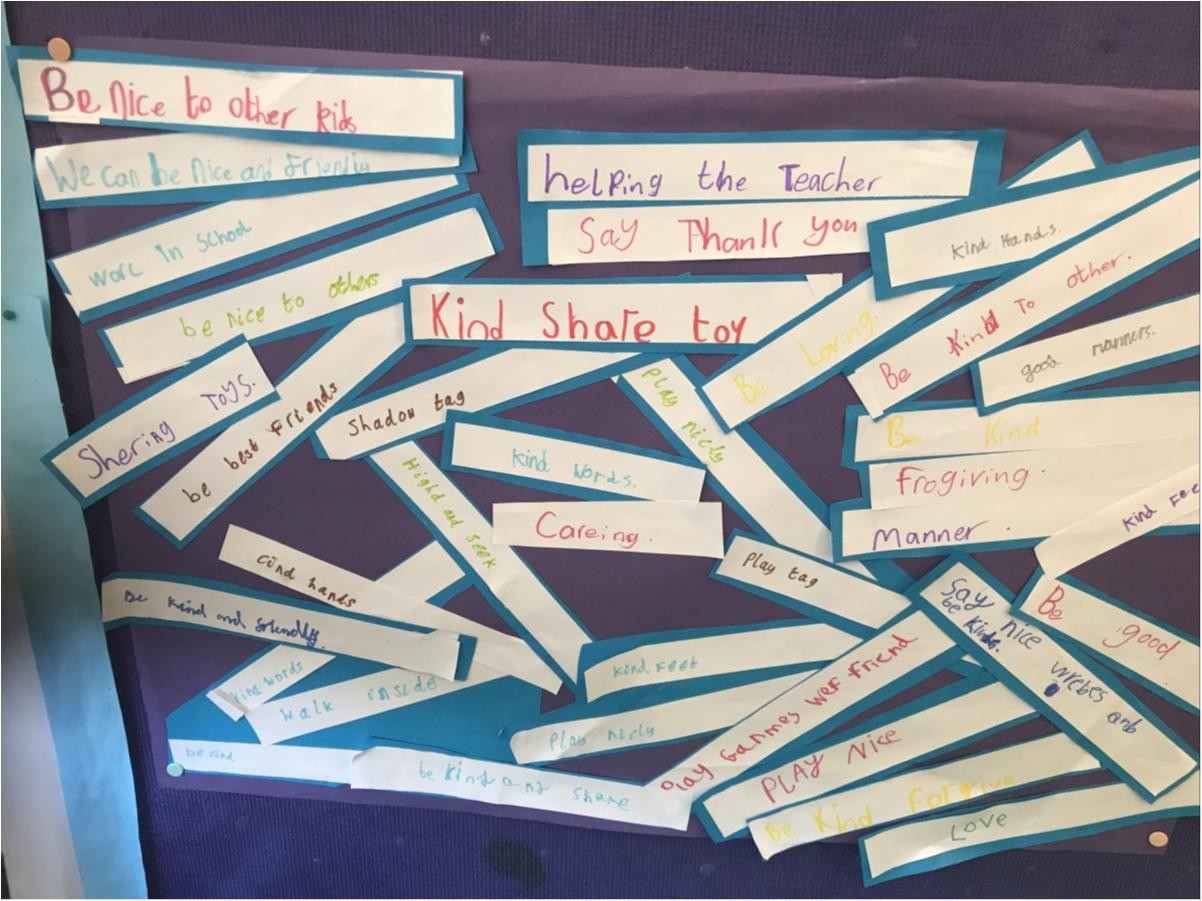 Be nice to other kids
We can be nice and Friendly
worc in School
be nice to others
Shering Toys.
be best Friends
helping the Teacher
Say Thank you
Kind Share toy
Shadow tag
Kind words.
Careing.
Highd and seek
Play nicly
Be Loving.
Kind Hands.
Be Kind To other.
good manners.
Be Kind
Frogiving.
Manner.
Kind Fee
cind hands
Be kind and friendly.
kind words
Walk inside
be cind
be kind and share
Play tag
Kind Feet
Play nicly
Play Ganmes wer friend
PLAY Nice
Be Kind Forgive
Love
Say nice wrebes anb
be kind.
Be good